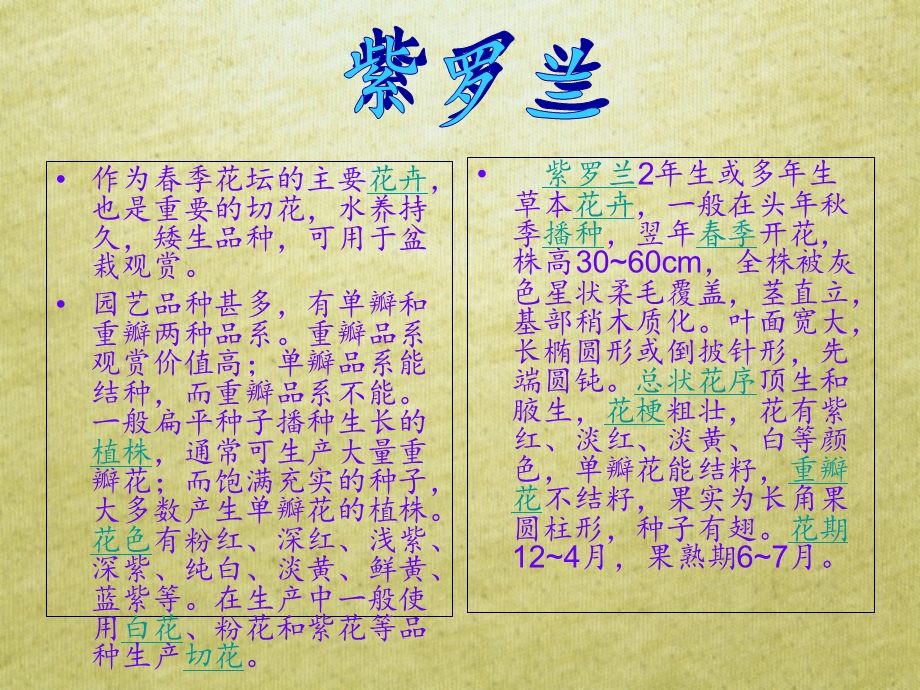 紫罗兰
• 作为春季花坛的主要花卉，
也是重要的切花，水养持
久，矮生品种，可用于盆
栽观赏。
• 园艺品种甚多，有单瓣和
重瓣两种品系。重瓣品系
观赏价值高；单瓣品系能
结种，而重瓣品系不能。
一般扁平种子播种生长的
植株，通常可生产大量重
瓣花；而饱满充实的种子，
大多数产生单瓣花的植株。
花色有粉红、深红、浅紫、
深紫、纯白、淡黄、鲜黄、
蓝紫等。在生产中一般使
用白花、粉花和紫花等品
种生产切花。
• 紫罗兰2年生或多年生
草本花卉，一般在头年秋
季播种，翌年春季开花，
株高30~60cm，全株被灰
色星状柔毛覆盖，茎直立，
基部稍木质化。叶面宽大，
长椭圆形或倒披针形，先
端圆钝。总状花序顶生和
腋生，花梗粗壮，花有紫
红、淡红、淡黄、白等颜
色，单瓣花能结籽，重瓣
花不结籽，果实为长角果
圆柱形，种子有翅。花期
12~4月，果熟期6~7月。